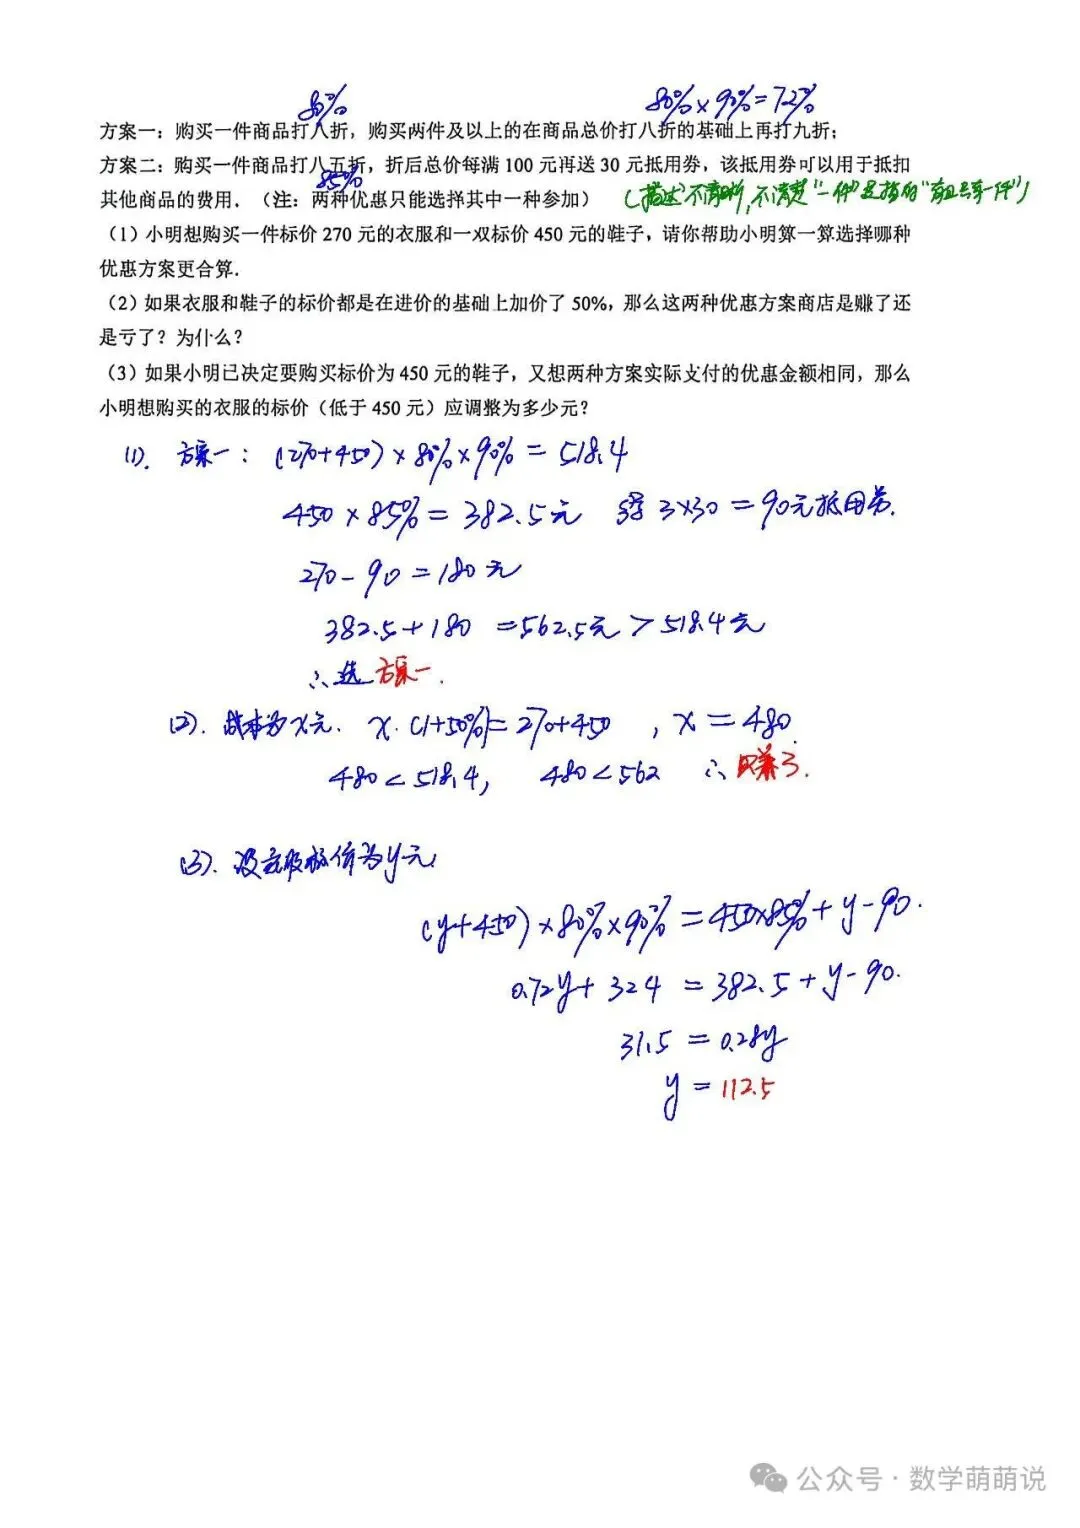 80%
80%×90%=72%
方案一：购买一件商品打八折，购买两件及以上的在商品总价打八折的基础上再打九折；
方案二：购买一件商品打八五折，折后总价每满 100 元再送 30 元抵用券，该抵用券可以用于抵扣
85%
其他商品的费用．（注：两种优惠只能选择其中一种参加）
(描述不清晰，不清楚“一件”是指的“有且只有一件”)
（1）小明想购买一件标价 270 元的衣服和一双标价 450 元的鞋子，请你帮助小明算一算选择哪种
优惠方案更合算.
（2）如果衣服和鞋子的标价都是在进价的基础上加价了 50%，那么这两种优惠方案商店是赚了还
是亏了？为什么？
（3）如果小明已决定要购买标价为 450 元的鞋子，又想两种方案实际支付的优惠金额相同，那么
小明想购买的衣服的标价（低于 450 元）应调整为多少元？
(1). 方案一：(270+450)×80%×90%=518.4
450×85%=382.5元 得 3×30=90元抵用券.
270-90=180元
382.5+180=562.5元>518.4元
∴选方案一.
(2). 成本为x元. x·(1+50%)=270+450，x=480.
480<518.4, 480<562 ∴赚了.
(3). 设衣服标价为y元
(y+450)×80%×90%=450×85%+y-90.
0.72y+324=382.5+y-90.
31.5=0.28y
y=112.5
公众号·数学萌萌说